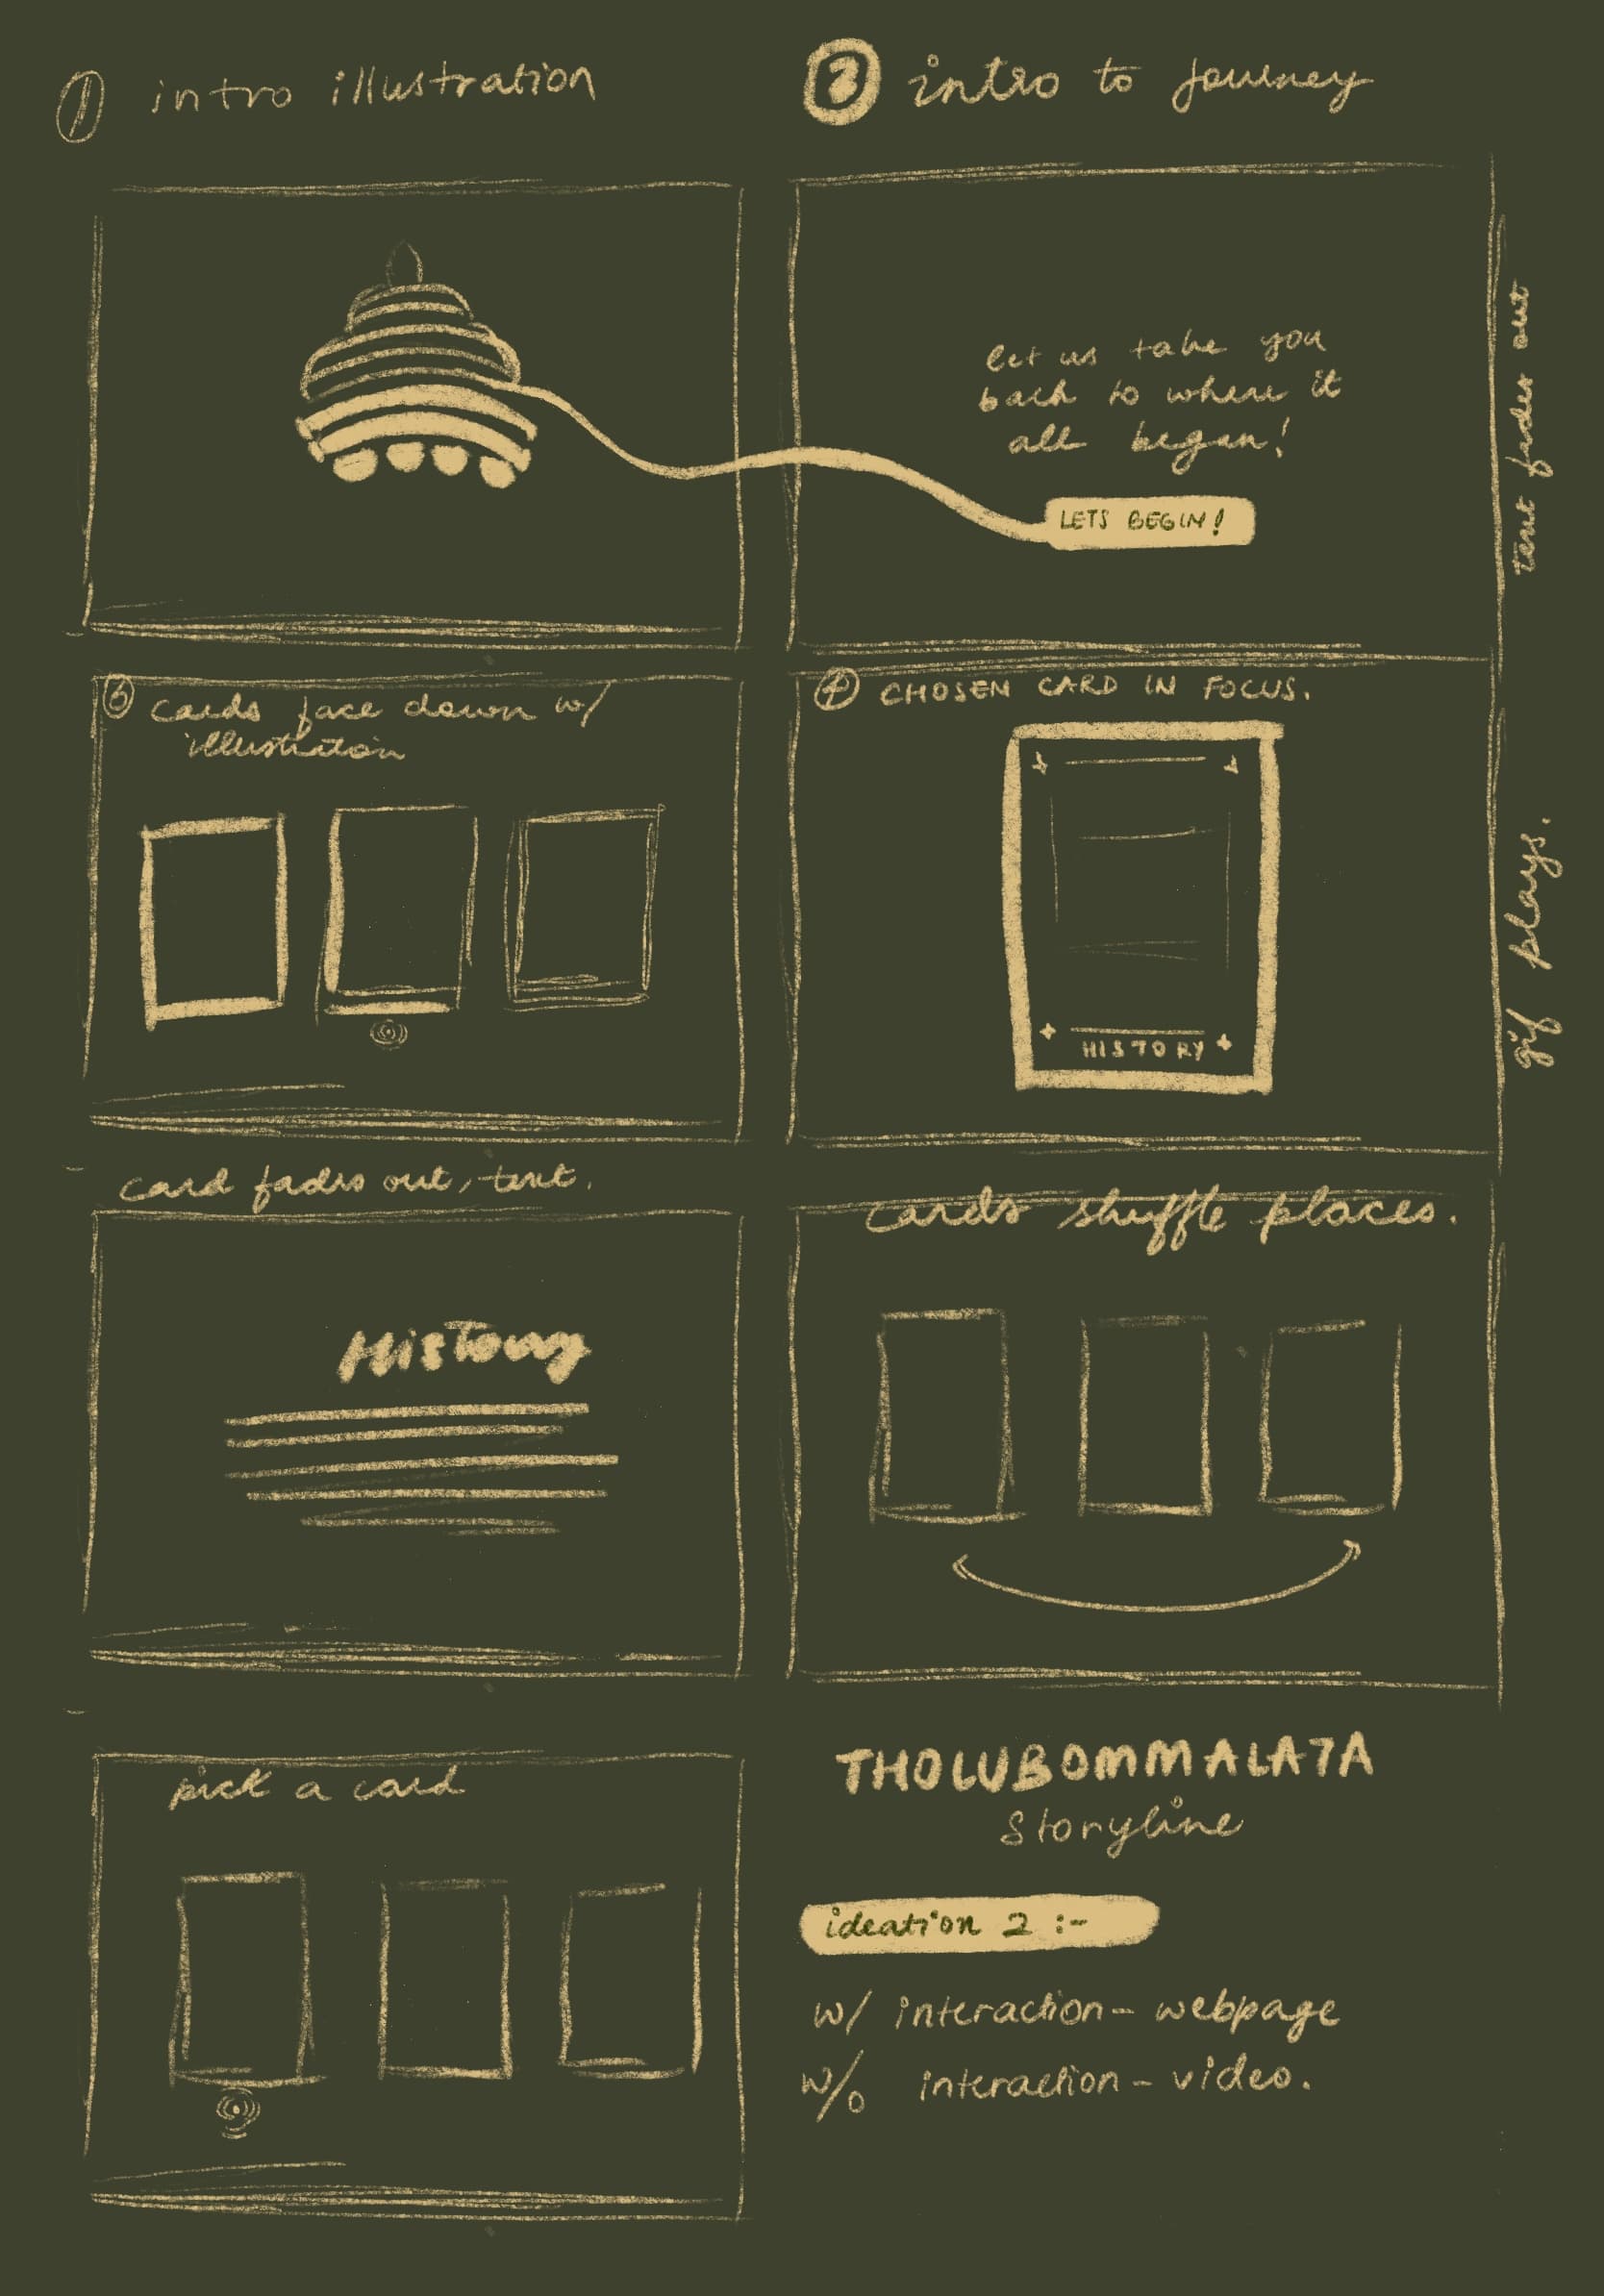 1 intro illustration
2 intro to journey
let us take you
back to where it
all began!
LETS BEGIN!
text fades out
3 cards face down w/
illustration
4 CHOSEN CARD IN FOCUS.
HISTORY
gif plays.
card fades out, text.
HISTORY
cards shuffle places.
pick a card
THOLUBOMMALATA
Storyline
ideation 2 :-
w/ interaction - webpage
w/o interaction - video.